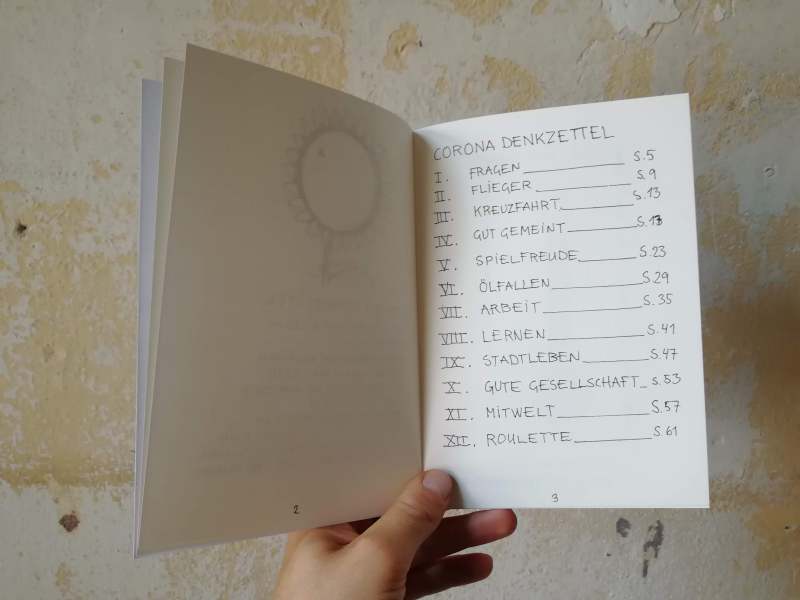 CORONA DENKZETTEL
I. FRAGEN S.5
II. FLIEGER S.9
III. KREUZFAHRT S.13
IV. GUT GEMEINT S.17
V. SPIELFREUDE S.23
VI. ÖLFALLEN S.29
VII. ARBEIT S.35
VIII. LERNEN S.41
IX. STADTLEBEN S.47
X. GUTE GESELLSCHAFT S.53
XI. MITWELT S.57
XII. ROULETTE S.61
2
3